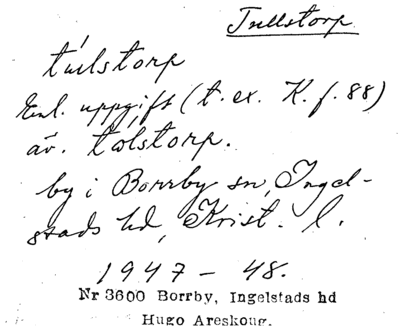 Tullstorp
tulstorp
Enl. uppgift (t. ex. K. f. 88)
äv. tolstorp.
by i Borrby sn, Ingel-
stads hd, Krist. l.
1947 – 48.
Nr 3600 Borrby, Ingelstads hd
Hugo Areskoug.